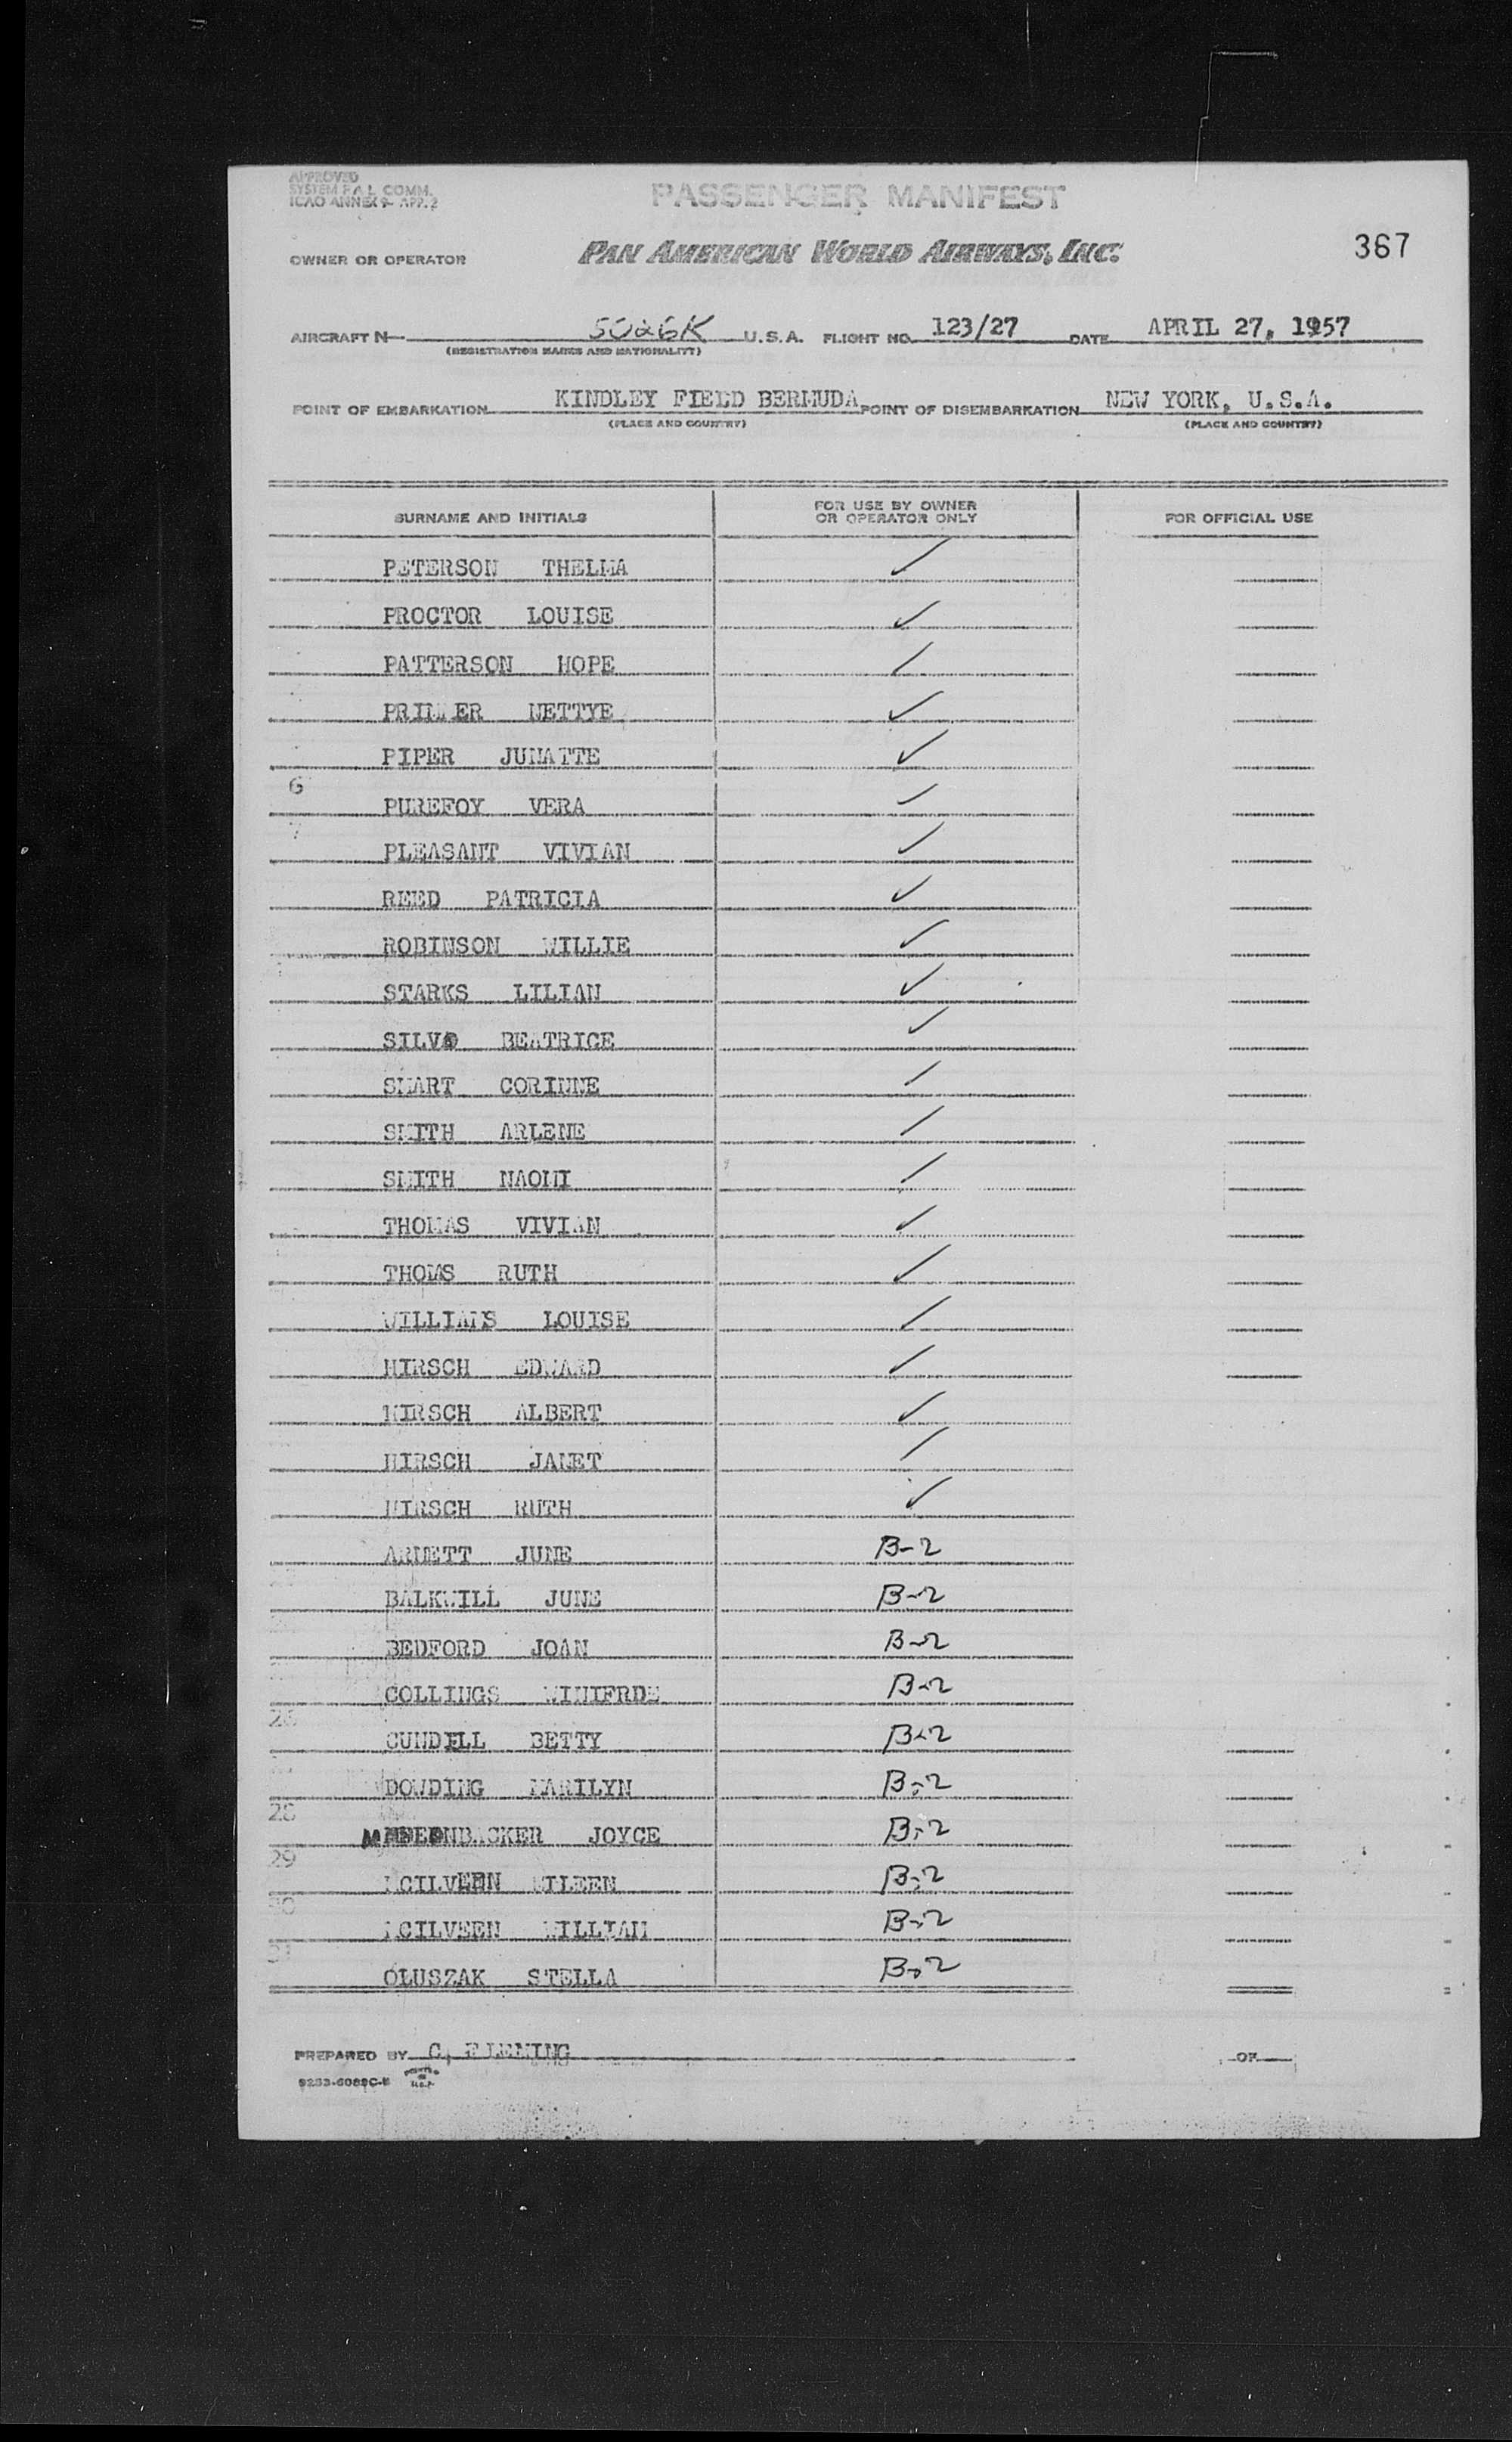 APPROVED
SYSTEM F A L COMM.
ICAO ANNEX 9- APP. 2
PASSENGER MANIFEST
OWNER OR OPERATOR PAN AMERICAN WORLD AIRWAYS, INC. 367
AIRCRAFT N 5026K U.S.A. FLIGHT NO. 123/27 DATE APRIL 27, 1957
(REGISTRATION MARKS AND NATIONALITY)
POINT OF EMBARKATION KINDLEY FIELD BERMUDA POINT OF DISEMBARKATION NEW YORK, U.S.A.
(PLACE AND COUNTRY) (PLACE AND COUNTRY)
SURNAME AND INITIALS FOR USE BY OWNER OR OPERATOR ONLY FOR OFFICIAL USE
PETERSON THELMA ✓
PROCTOR LOUISE ✓
PATTERSON HOPE ✓
PRIMMER NETTYE ✓
PIPER JUNATTE ✓
6 PUREFOY VERA ✓
7 PLEASANT VIVIAN ✓
REED PATRICIA ✓
ROBINSON WILLIE ✓
STARKS LILIAN ✓
BEATRICE ✓
SMART CORINNE ✓
SMITH ARLENE ✓
SMITH NAOMI ✓
THOMAS VIVIAN ✓
THOMS RUTH ✓
WILLIAMS LOUISE ✓
HIRSCH EDWARD ✓
HIRSCH ALBERT ✓
HIRSCH JANET ✓
HIRSCH RUTH ✓
ARNETT JUNE B-2
BALKWILL JUNE B-2
BEDFORD JOAN B-2
COLLINGS WINIFRDE B-2
CUNDELL BETTY B-2
DOWDING MARILYN B-2
28 JOYCE B-2
29 MCILVEEN EILEEN B-2
30 MCILVEEN WILLIAM B-2
31 OLUSZAK STELLA B-2
PREPARED BY C. FLEMING OF